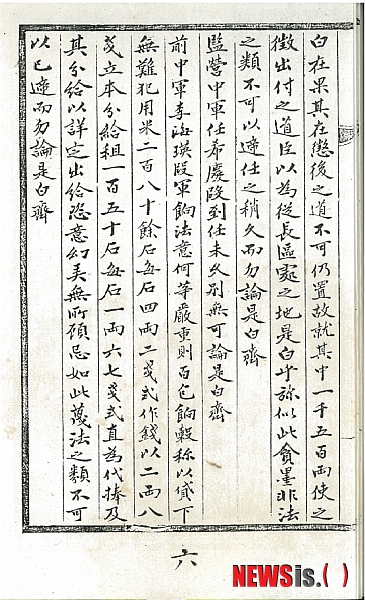 白在果其在懲後之道不可仍置故就其中一千五百兩使之
徵出付之道臣以爲從長區處之地是白乎旀似此貪墨非法
之類不可以遞任之稍久而勿論是白齊
監營中軍任希慶段到任未久別無可論是白齊
前中軍李海瑛段軍餉法意何等嚴重則百包餉穀称以貸下
無難犯用米二百八十餘石每石四兩二戔式作錢以二兩八
戔立本分給租一百五十石每石一兩六七戔式直爲代捧及
其分給以詳定出給恣意幻美無所顧忌如此蔑法之類不可
以已遞而勿論是白齊
六
NEWSis.( )